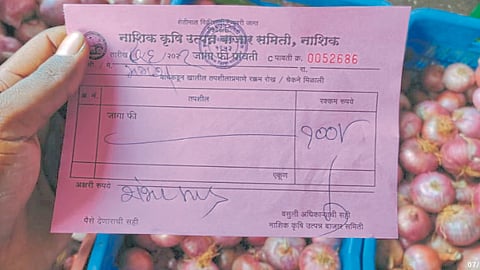 नाशिक कृषि उत्पन्न बाजार समिती, नाशिक
तारीख जागा फी पावती C पावती क्र. 0052686
खालील तपशीलाप्रमाणे रक्कम रोख / चेकने मिळाली
अ. नं. तपशील रक्कम रुपये
जागा फी १००/-
एकूण
अक्षरी रुपये
पैसे देणाराची सही
वसुली अधिकाऱ्याची सही
नाशिक कृषि उत्पन्न बाजार समिती
07/